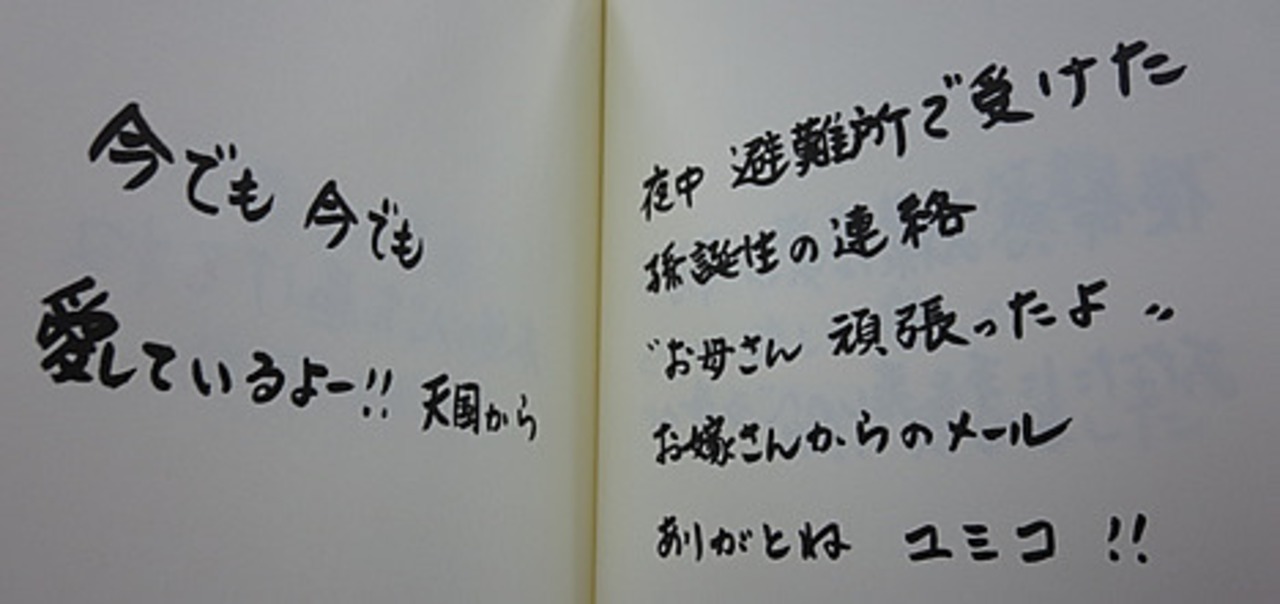 今でも 今でも
愛しているよー!! 天国から
夜中 避難所で受けた
孫誕性の連絡
“お母さん 頑張ったよ”
お嫁さんからのメール
ありがとね ユミコ!!